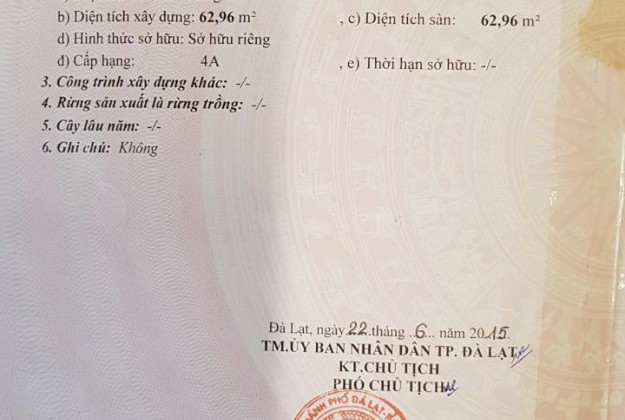 b) Diện tích xây dựng: 62,96 m² , c) Diện tích sàn: 62,96 m²
d) Hình thức sở hữu: Sở hữu riêng
đ) Cấp hạng: 4A , e) Thời hạn sở hữu: -/-
3. Công trình xây dựng khác: -/-
4. Rừng sản xuất là rừng trồng: -/-
5. Cây lâu năm: -/-
6. Ghi chú: Không
Đà Lạt, ngày 22 tháng ..6... năm 2015.
TM.ỦY BAN NHÂN DÂN TP. ĐÀ LẠT
KT.CHỦ TỊCH
PHÓ CHỦ TỊCH
THÀNH PHỐ ĐÀ LẠT